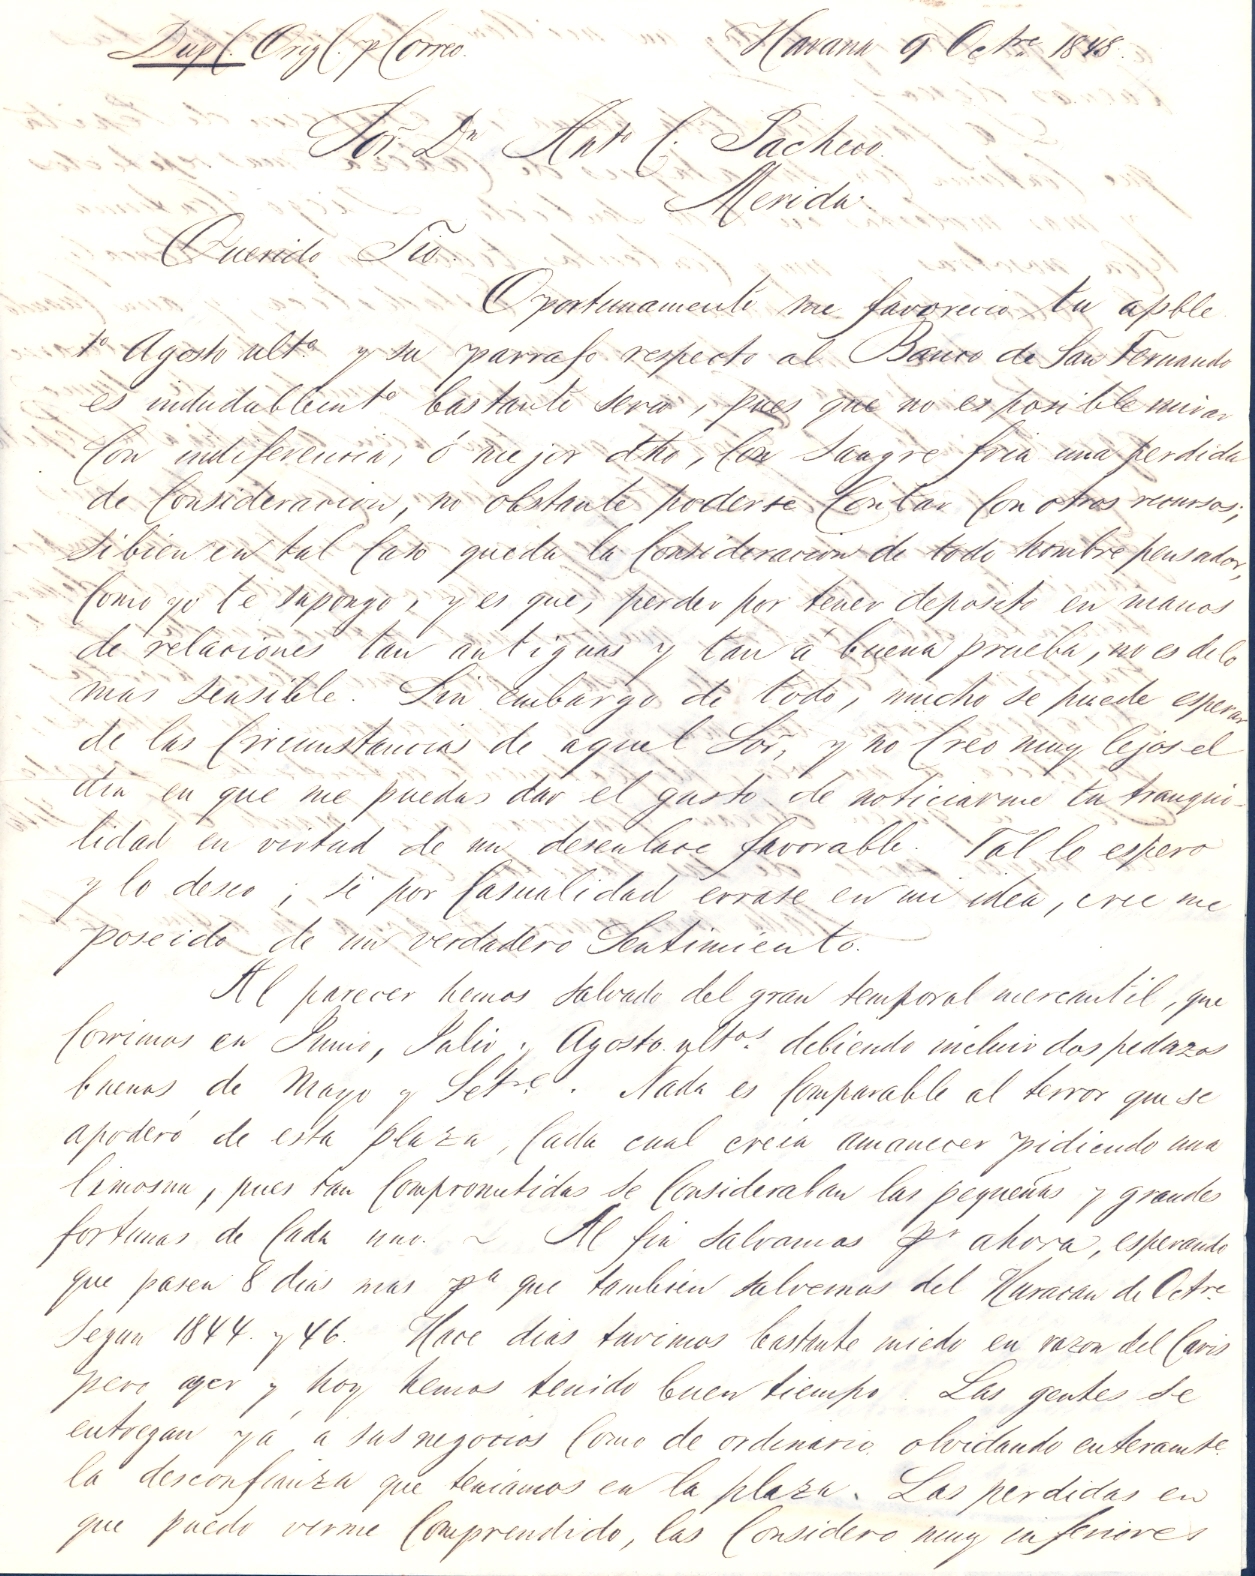 Dupl. Origl. p Correo. Havana 9 Octre 1848.
Sor. Dn Anto C. Pacheco.
Merida.
Querido Tio.
Oportunamente me favorecio tu apble
1o Agosto ulto y su parrafo respecto al Banco de San Fernando
es indudablemto bastante serio, pues que no es posible mirar
con indiferencia, ó mejor dho, con sangre fria una perdida
de consideracion, no obstante poderse contar con otros recursos;
sibien en tal caso queda la consideracion de todo hombre pensador,
como yo te supongo, y es que, perder por tener deposito en manos
de relaciones tan antiguas y tan a buena prueba, no es delo
mas sensible. Sin embargo de todo, mucho se puede esperar
de las circumstancias de aquel Sor, y no creo muy lejos el
dia en que me puedas dar el gusto de noticiarme tu tranqui-
lidad en virtud de un desenlace favorable. Tal lo espero
y lo deseo; si por casualidad errase en mi idea, cree me
poseido de un verdadero sentimiento.
Al parecer hemos salvado del gran temporal mercantil, que
corrimos en Junio, Julio y Agosto ultos. debiendo incluir dos pedazos
buenos de Mayo y Setre. Nada es comparable al terror que se
apoderó de esta plaza, cada cual creia amanecer pidiendo una
limosna, pues tan comprometidas se consideraban las pequeñas y grandes
fortunas de cada uno. ~ Al fin salvamos pr ahora, esperando
que pasen 8 dias mas pa que tambien salvemos del Huracan de Octre.
segun 1844. y 46. Hace dias tuvimos bastante miedo en razon del cariz
pero ayer y hoy hemos tenido buen tiempo. Las gentes se
entregan yá a sus negocios como de ordinario olvidando enteramte.
la desconfianza que teniamos en la plaza. Las perdidas en
que puedo verme comprendido, las considero muy inferiores